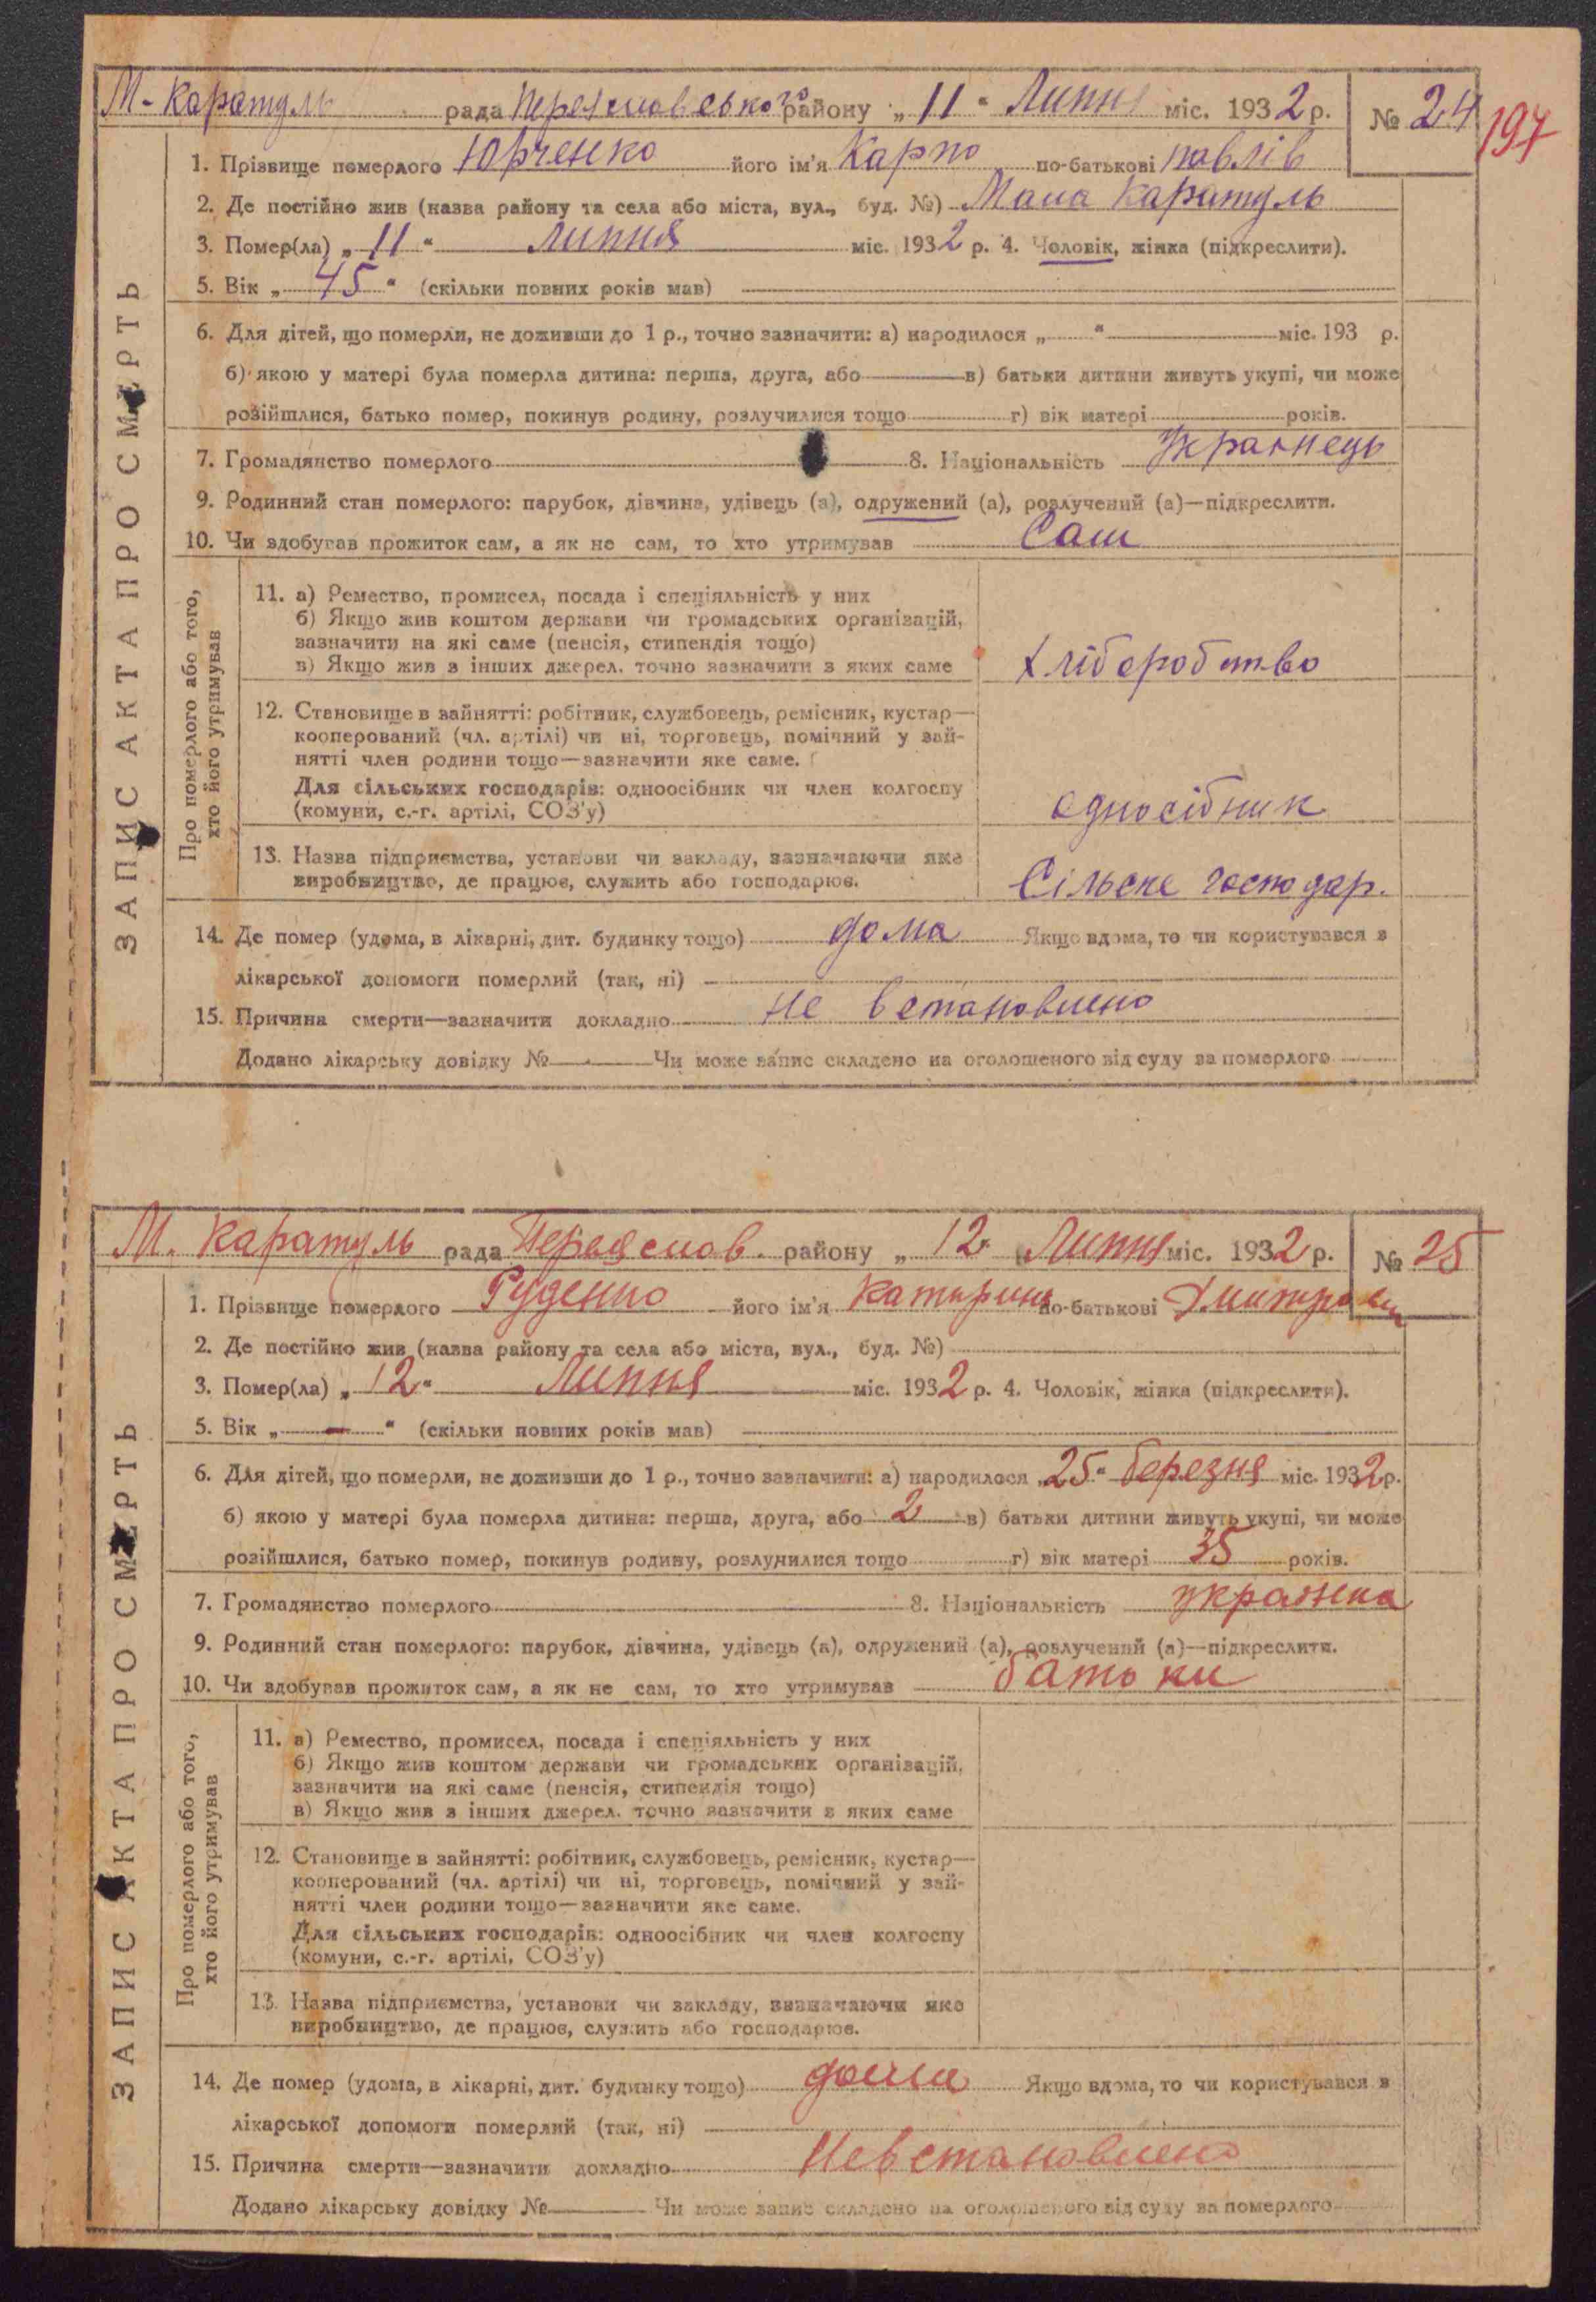 М-Каратуль рада Переяславського району „11“ Липня міс. 1932 р. № 24
197
1. Прізвище померлого Юрченко його ім'я Карпо по-батькові Павлів
2. Де постійно жив (назва району та села або міста, вул., буд. №) Мала Каратуль
3. Помер(ла) „11“ Липня міс. 1932 р. 4. Чоловік, жінка (підкреслити).
5. Вік „45“ (скільки повних років мав)
6. Для дітей, що померли, не доживши до 1 р., точно зазначити: а) народилося „ “ міс. 193 р.
б) якою у матері була померла дитина: перша, друга, або в) батьки дитини живуть укупі, чи може
розійшлися, батько помер, покинув родину, розлучилися тощо г) вік матері років.
7. Громадянство померлого 8. Національність Українець
9. Родинний стан померлого: парубок, дівчина, удівець (а), одружений (а), розлучений (а)—підкреслити.
10. Чи здобував прожиток сам, а як не сам, то хто утримував Сам
ЗАПИС АКТА ПРО СМЕРТЬ
Про померлого або того,
хто його утримував
11. а) Ремество, промисел, посада і спеціяльність у них
б) Якщо жив коштом держави чи громадських організацій,
зазначити на які саме (пенсія, стипендія тощо)
в) Якщо жив з інших джерел, точно зазначити з яких саме Хліборобство
12. Становище в зайнятті: робітник, службовець, ремісник, кустар—
кооперований (чл. артілі) чи ні, торговець, помічний у зай-
нятті член родини тощо—зазначити яке саме.
Для сільських господарів: одноосібник чи член колгоспу
(комуни, с.-г. артілі, СОЗ'у) односібник
13. Назва підприємства, установи чи закладу, зазначаючи яке
виробництво, де працює, служить або господарює. Сільске господар.
14. Де помер (удома, в лікарні, дит. будинку тощо) дома Якщо вдома, то чи користувався з
лікарської допомоги померлий (так, ні)
15. Причина смерти—зазначити докладно не встановлено
Додано лікарську довідку № Чи може запис складено на оголошеного від суду за померлого
М. Каратуль рада Переяслав. району „12“ Липня міс. 1932 р. № 25
1. Прізвище померлого Руденко його ім'я Катирина по-батькові
2. Де постійно жив (назва району та села або міста, вул., буд. №)
3. Помер(ла) „12“ Липня міс. 1932 р. 4. Чоловік, жінка (підкреслити).
5. Вік „—“ (скільки повних років мав)
6. Для дітей, що померли, не доживши до 1 р., точно зазначити: а) народилося „25“ березня міс. 1932 р.
б) якою у матері була померла дитина: перша, друга, або 2 в) батьки дитини живуть укупі, чи може
розійшлися, батько помер, покинув родину, розлучилися тощо г) вік матері 35 років.
7. Громадянство померлого 8. Національність українка
9. Родинний стан померлого: парубок, дівчина, удівець (а), одружений (а), розлучений (а)—підкреслити.
10. Чи здобував прожиток сам, а як не сам, то хто утримував батьки
ЗАПИС АКТА ПРО СМЕРТЬ
Про померлого або того,
хто його утримував
11. а) Ремество, промисел, посада і спеціяльність у них
б) Якщо жив коштом держави чи громадських організацій,
зазначити на які саме (пенсія, стипендія тощо)
в) Якщо жив з інших джерел, точно зазначити з яких саме
12. Становище в зайнятті: робітник, службовець, ремісник, кустар—
кооперований (чл. артілі) чи ні, торговець, помічний у зай-
нятті член родини тощо—зазначити яке саме.
Для сільських господарів: одноосібник чи член колгоспу
(комуни, с.-г. артілі, СОЗ'у)
13. Назва підприємства, установи чи закладу, зазначаючи яке
виробництво, де працює, служить або господарює.
14. Де помер (удома, в лікарні, дит. будинку тощо) дома Якщо вдома, то чи користувався з
лікарської допомоги померлий (так, ні)
15. Причина смерти—зазначити докладно Невстановлено
Додано лікарську довідку № Чи може запис складено на оголошеного від суду за померлого